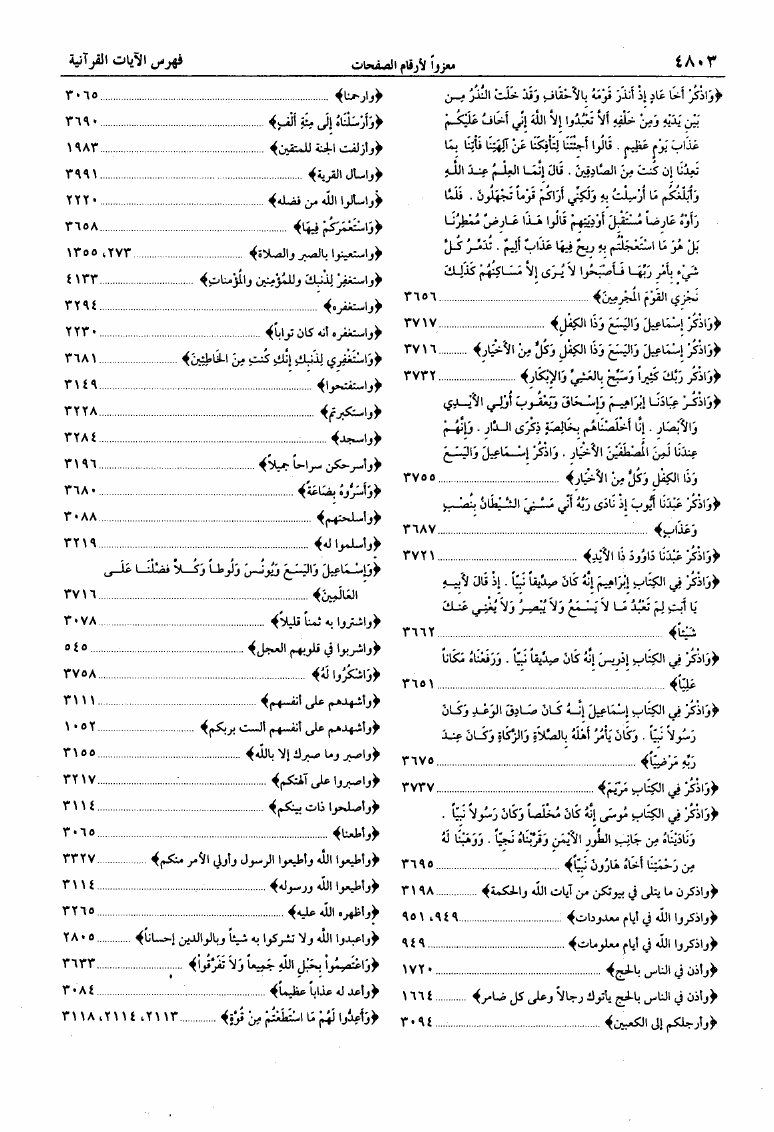 ٤٨٠٣ معزواً لأرقام الصفحات فهرس الآيات القرآنية
﴿وَاذْكُرْ أَخَا عَادٍ إِذْ أَنذَرَ قَوْمَهُ بِالأَحْقَافِ وَقَدْ خَلَتْ النُّذُرُ مِن
بَيْنِ يَدَيْهِ وَمِنْ خَلْفِهِ أَلاَّ تَعْبُدُوا إِلاَّ اللهَ إِنِّي أَخَافُ عَلَيْكُمْ
عَذَابَ يَوْمٍ عَظِيمٍ . قَالُوا أَجِئْتَنَا لِتَأْفِكَنَا عَنْ آلِهَتِنَا فَأْتِنَا بِمَا
تَعِدُنَا إِن كُنتَ مِنَ الصَّادِقِينَ . قَالَ إِنَّمَا العِلْمُ عِندَ اللهِ
وَأُبَلِّغُكُم مَا أُرْسِلْتُ بِهِ وَلَكِنِّي أَرَاكُمْ قَوْماً تَجْهَلُونَ . فَلَمَّا
رَأَوْهُ عَارِضاً مُسْتَقْبِلَ أَوْدِيَتِهِمْ قَالُوا هَذَا عَارِضٌ مُمْطِرُنَا
بَلْ هُوَ مَا اسْتَعْجَلْتُم بِهِ رِيحٌ فِيهَا عَذَابٌ أَلِيمٌ . تُدَمِّرُ كُلَّ
شَيْءٍ بِأَمْرِ رَبِّهَا فَأَصْبَحُوا لاَ يُرَى إِلاَّ مَسَاكِنُهُمْ كَذَلِكَ
نَجْزِي القَوْمَ المُجْرِمِينَ﴾ ٣٦٥٦
﴿وَاذْكُرْ إِسْمَاعِيلَ وَاليَسَعَ وَذَا الكِفْلِ﴾ ٣٧١٧
﴿وَاذْكُرْ إِسْمَاعِيلَ وَاليَسَعَ وَذَا الكِفْلِ وَكُلٌّ مِنَ الأَخْيَارِ﴾ ٣٧١٦
﴿وَاذْكُر رَبَّكَ كَثِيراً وَسَبِّحْ بِالعَشِيِّ وَالإِبْكَارِ﴾ ٣٧٣٢
﴿وَاذْكُرْ عِبَادَنَا إِبْرَاهِيمَ وَإِسْحَاقَ وَيَعْقُوبَ أُوْلِي الأَيْدِي
وَالأَبْصَارِ . إِنَّا أَخْلَصْنَاهُم بِخَالِصَةٍ ذِكْرَى الدَّارِ . وَإِنَّهُمْ
عِندَنَا لَمِنَ المُصْطَفَيْنَ الأَخْيَارِ . وَاذْكُرْ إِسْمَاعِيلَ وَاليَسَعَ
وَذَا الكِفْلِ وَكُلٌّ مِنَ الأَخْيَارِ﴾ ٣٧٥٥
﴿وَاذْكُرْ عَبْدَنَا أَيُّوبَ إِذْ نَادَى رَبَّهُ أَنِّي مَسَّنِيَ الشَّيْطَانُ بِنُصْبٍ
وَعَذَابٍ﴾ ٣٦٨٧
﴿وَاذْكُرْ عَبْدَنَا دَاوُودَ ذَا الأَيْدِ﴾ ٣٧٢١
﴿وَاذْكُرْ فِي الكِتَابِ إِبْرَاهِيمَ إِنَّهُ كَانَ صِدِّيقاً نَبِيّاً . إِذْ قَالَ لأَبِيهِ
يَا أَبَتِ لِمَ تَعْبُدُ مَا لاَ يَسْمَعُ وَلاَ يُبْصِرُ وَلاَ يُغْنِي عَنكَ
شَيْئاً﴾ ٣٦٦٢
﴿وَاذْكُرْ فِي الكِتَابِ إِدْرِيسَ إِنَّهُ كَانَ صِدِّيقاً نَبِيّاً . وَرَفَعْنَاهُ مَكَاناً
عَلِيّاً﴾ ٣٦٥١
﴿وَاذْكُرْ فِي الكِتَابِ إِسْمَاعِيلَ إِنَّهُ كَانَ صَادِقَ الوَعْدِ وَكَانَ
رَسُولاً نَبِيّاً . وَكَانَ يَأْمُرُ أَهْلَهُ بِالصَّلاَةِ وَالزَّكَاةِ وَكَانَ عِندَ
رَبِّهِ مَرْضِيّاً﴾ ٣٦٧٥
﴿وَاذْكُرْ فِي الكِتَابِ مَرْيَمَ﴾ ٣٧٣٧
﴿وَاذْكُرْ فِي الكِتَابِ مُوسَى إِنَّهُ كَانَ مُخْلَصاً وَكَانَ رَسُولاً نَبِيّاً .
وَنَادَيْنَاهُ مِن جَانِبِ الطُّورِ الأَيْمَنِ وَقَرَّبْنَاهُ نَجِيّاً . وَوَهَبْنَا لَهُ
مِن رَحْمَتِنَا أَخَاهُ هَارُونَ نَبِيّاً﴾ ٣٦٩٥
﴿واذكرن ما يتلى في بيوتكن من آيات الله والحكمة﴾ ٣١٩٨
﴿واذكروا الله في أيام معدودات﴾ ٩٤٩، ٩٥١
﴿واذكروا الله في أيام معلومات﴾ ٩٤٩
﴿وأذن في الناس بالحج﴾ ١٧٢٠
﴿وأذن في الناس بالحج يأتوك رجالاً وعلى كل ضامر﴾ ١٦٦٤
﴿وأرجلكم إلى الكعبين﴾ ٣٠٩٤
﴿وارحمنا﴾ ٣٠٦٥
﴿وَأَرْسَلْنَاهُ إِلَى مِئَةِ أَلْفٍ﴾ ٣٦٩٠
﴿وأزلفت الجنة للمتقين﴾ ١٩٨٣
﴿واسأل القرية﴾ ٣٩٩١
﴿واسألوا الله من فضله﴾ ٢٢٢٠
﴿وَاسْتَعْمَرَكُمْ فِيهَا﴾ ٣٦٥٨
﴿واستعينوا بالصبر والصلاة﴾ ٢٧٣، ١٣٥٥
﴿واستغفِرْ لِذَنبِكَ وللمُؤمِنين والمُؤمنات﴾ ٤١٣٣
﴿واستغفره﴾ ٣٢٩٤
﴿واستغفره أنه كان تواباً﴾ ٢٢٣٠
﴿وَاسْتَغْفِرِي لِذَنبِكِ إِنَّكِ كُنتِ مِنَ الخَاطِئِينَ﴾ ٣٦٨١
﴿واستفتحوا﴾ ٣١٤٩
﴿واستكبرتم﴾ ٣٢٢٨
﴿واسجد﴾ ٣٢٨٤
﴿وأسرحكن سراحاً جميلاً﴾ ٣١٩٦
﴿وَأَسَرُّوهُ بِضَاعَةً﴾ ٣٦٨٠
﴿وأسلحتهم﴾ ٣٠٨٨
﴿وأسلموا له﴾ ٣٢١٩
﴿وَإِسْمَاعِيلَ وَاليَسَعَ وَيُونُسَ وَلُوطاً وَكُلاًّ فَضَّلْنَا عَلَى
العَالَمِينَ﴾ ٣٧١٦
﴿واشتروا به ثمناً قليلاً﴾ ٣٠٧٨
﴿واشربوا في قلوبهم العجل﴾ ٥٤٥
﴿وَاشْكُرُوا لَهُ﴾ ٣٧٥٨
﴿وأشهدهم على أنفسهم﴾ ٣١١١
﴿وأشهدهم على أنفسهم ألست بربكم﴾ ١٠٥٢
﴿واصبر وما صبرك إلا بالله﴾ ٣١٥٥
﴿واصبروا على آلهتكم﴾ ٣٢١٧
﴿وأصلحوا ذات بينكم﴾ ٣١١٤
﴿وأطعنا﴾ ٣٠٦٥
﴿وأطيعوا الله وأطيعوا الرسول وأولي الأمر منكم﴾ ٣٣٢٧
﴿وأطيعوا الله ورسوله﴾ ٣١١٤
﴿وأظهره الله عليه﴾ ٣٢٦٥
﴿واعبدوا الله ولا تشركوا به شيئاً وبالوالدين إحساناً﴾ ٢٨٠٥
﴿وَاعْتَصِمُوا بِحَبْلِ اللهِ جَمِيعاً وَلاَ تَفَرَّقُوا﴾ ٣٦٣٣
﴿وأعد له عذاباً عظيماً﴾ ٣٠٨٤
﴿وَأَعِدُّوا لَهُمْ مَا اسْتَطَعْتُمْ مِنْ قُوَّةٍ﴾ ٢١١٣، ٢١١٤، ٣١١٨